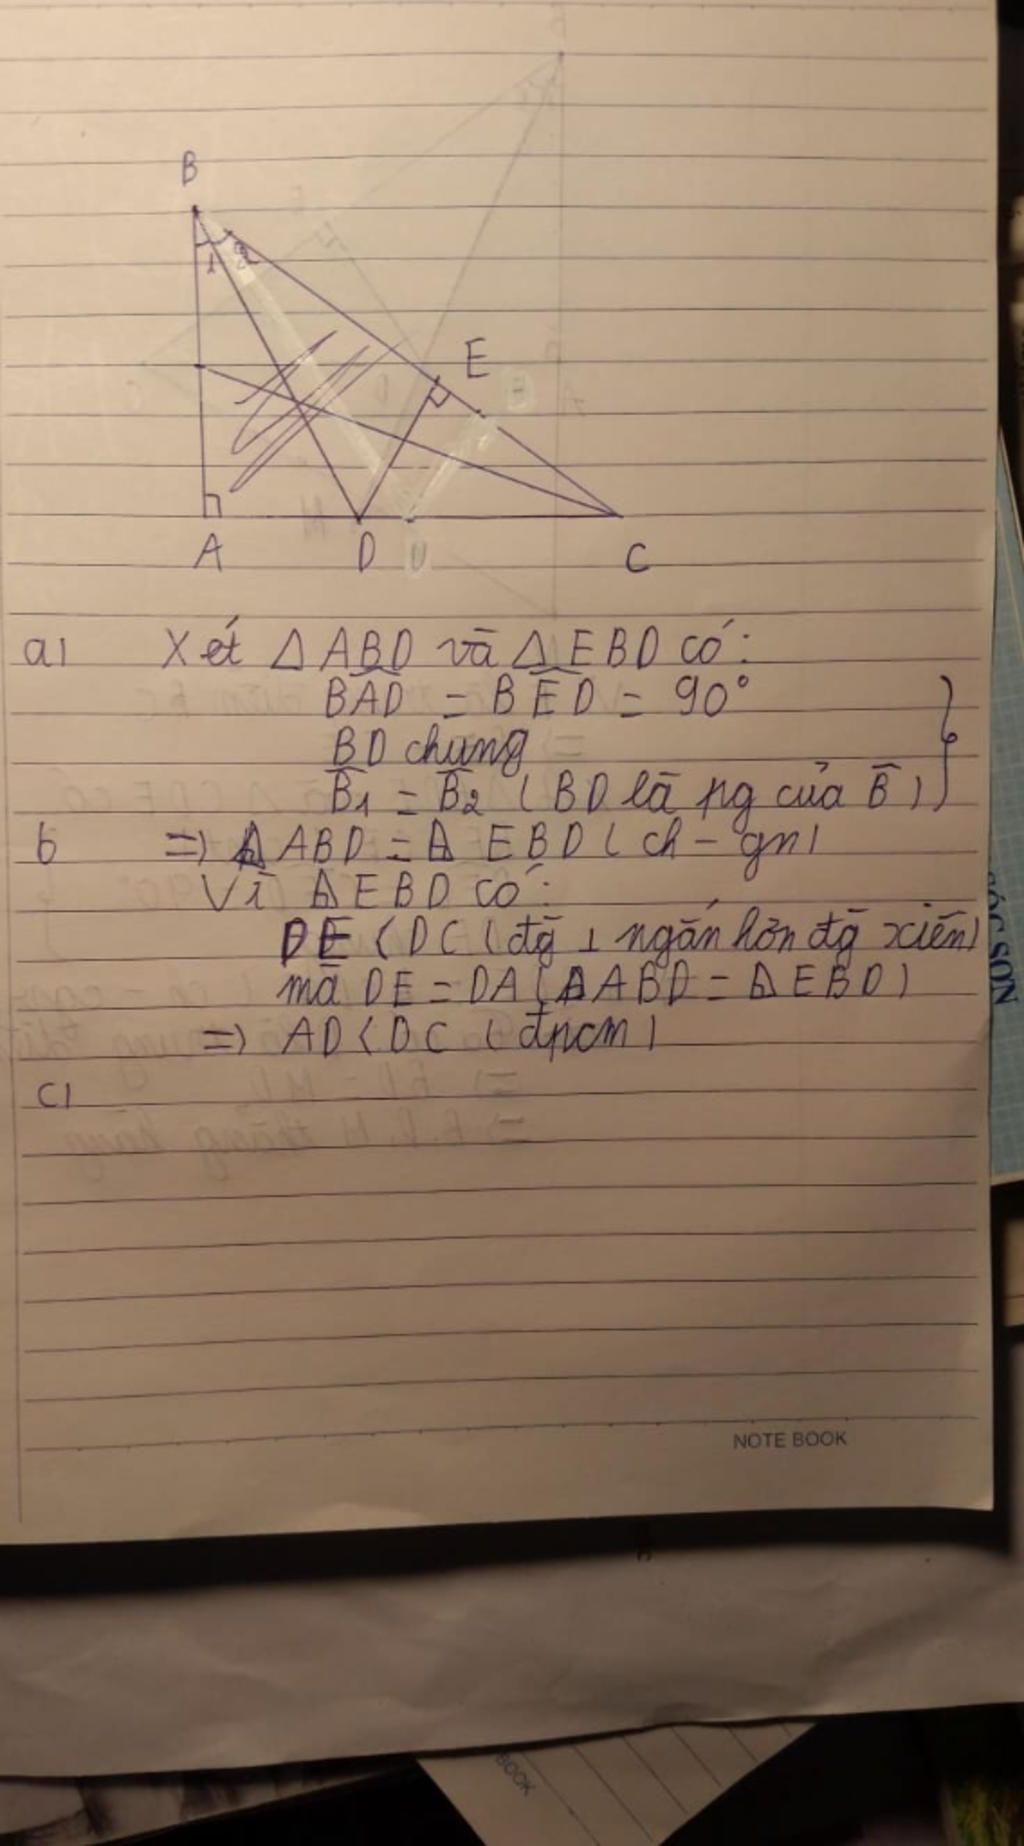 B
1 2
E
A D C
a) Xét Δ ABD và Δ EBD có:
BAD = BED = 90°
BD chung
B1 = B2 (BD là pg của B)
b => Δ ABD = Δ EBD (ch - gn)
Vì Δ EBD có:
DE < DC (đg ⊥ ngắn hơn đg xiên)
mà DE = DA (Δ ABD = Δ EBD)
=> AD < DC (đpcm)
c)
NOTE BOOK
SÓC SƠN
BOOK